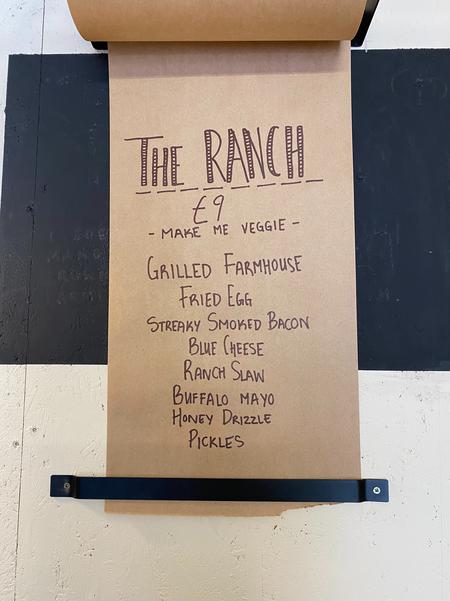 THE RANCH
£9
- MAKE ME VEGGIE -
GRILLED FARMHOUSE
FRIED EGG
STREAKY SMOKED BACON
BLUE CHEESE
RANCH SLAW
BUFFALO MAYO
HONEY DRIZZLE
PICKLES